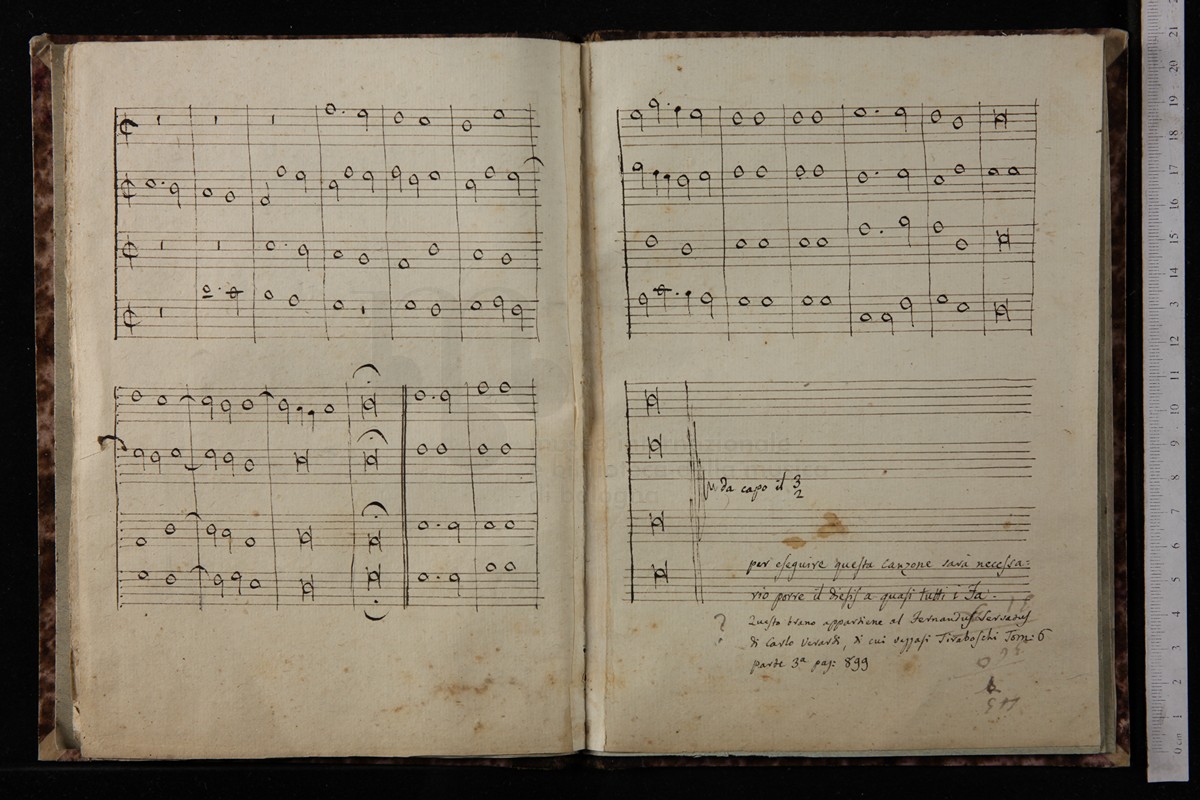 da capo il 3/2
per eseguire questa canzone sarà necessa:
rio porre il diesis a quasi tutti i Fa.
?
Questo brano appartiene al Fernandus Servatus
di Carlo Verardi, di cui veggasi Tiraboschi Tom: 6
parte 3ª pag: 899
0 cm 1 2 3 4 5 6 7 8 9 10 11 12 13 14 15 16 17 18 19 20 21